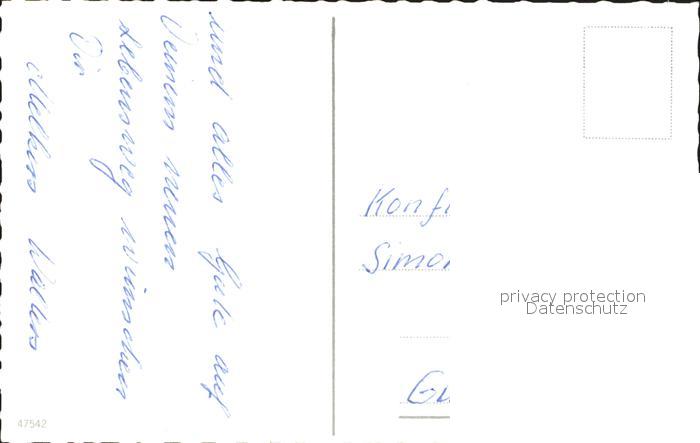 und alles Gute auf
Deinem neuen
Lebensweg wünschen
Dir
Wallers
Konfi
Simon
Gu
privacy protection
Datenschutz
47542